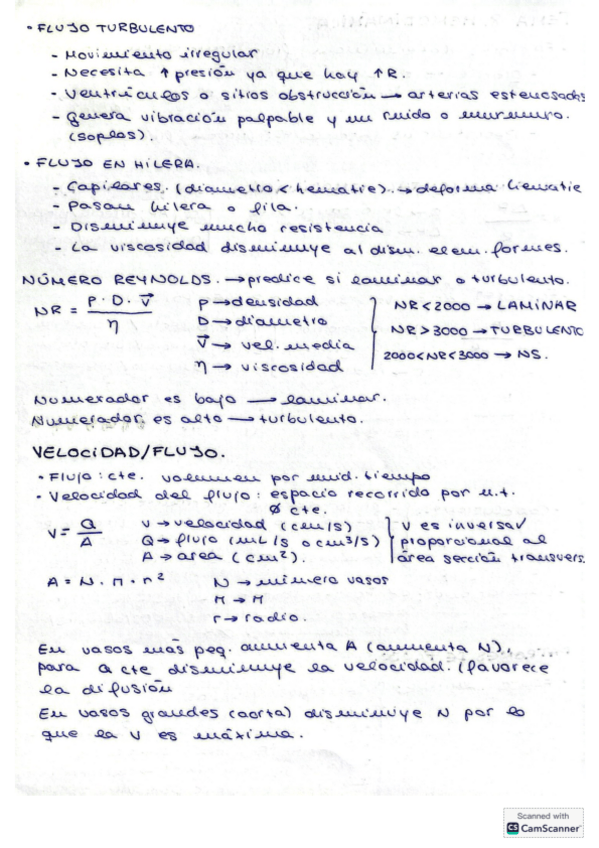 · FLUJO TURBULENTO
- Movimiento irregular
- Necesita ↑ presión ya que hay ↑ R.
- Ventrículos o sitios obstrucción → arterias estenosadas
- Genera vibración palpable y un ruido o murmuro.
(soplos).
· FLUJO EN HILERA.
- Capilares. (diametro < hematie). → deforma hematie
- Pasan hilera o fila.
- Disminuye mucho resistencia
- La viscosidad disminuye al dism. elem. formes.
NÚMERO REYNOLDS. → predice si laminar o turbulento.
NR = P · D · V̄ / η
P → densidad
D → diametro
V̄ → vel. media
η → viscosidad
NR < 2000 → LAMINAR
NR > 3000 → TURBULENTO
2000 < NR < 3000 → NS.
Numerador es bajo → laminar.
Numerador es alto → turbulento.
VELOCIDAD/FLUJO.
· Flujo: cte. volumen por unid. tiempo
· Velocidad del flujo: espacio recorrido por u.t.
Ø cte.
V = Q / A
v → velocidad (cm/s)
Q → flujo (mL/s o cm³/s)
A → area (cm²).
V es inversa/
proporcional al
área sección transvers
A = N · π · r²
N → número vasos
π → π
r → radio.
En vasos más peq. aumenta A (aumenta N),
para Q cte disminuye la velocidad. (favorece
la difusión
En vasos grandes (aorta) disminuye N por lo
que la V es máxima.
Scanned with
CS CamScanner